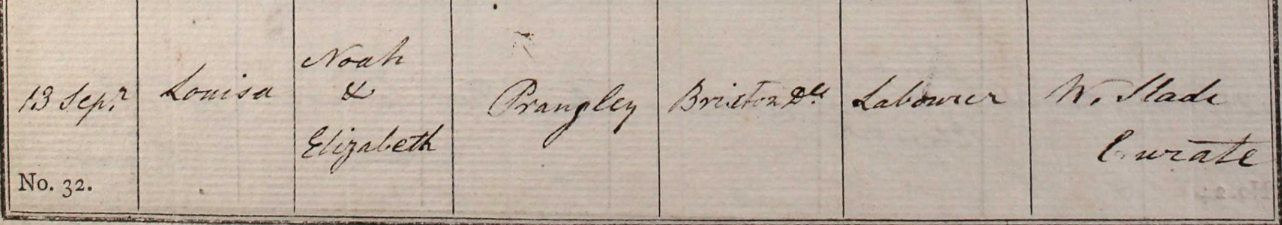 13 Sepr
No. 32.
Louisa
Noah
&
Elizabeth
Prangley
Brixton Dll
Labourer
W. Slade
Curate